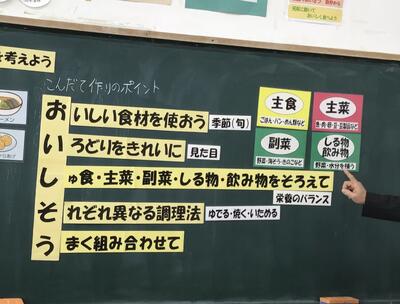 を考えよう
こんだて作りのポイント
おいしい食材を使おう 季節(旬)
いろどりをきれいに 見た目
しゅ食・主菜・副菜・しる物・飲み物をそろえて
栄養のバランス
それぞれ異なる調理法 ゆでる・焼く・いためる
うまく組み合わせて
主食
ごはん・パン・めん類など
主菜
魚・肉・卵・豆・豆製品など
副菜
野菜・海そう・きのこなど
しる物
飲み物
野菜・水分を補う
ラーメン